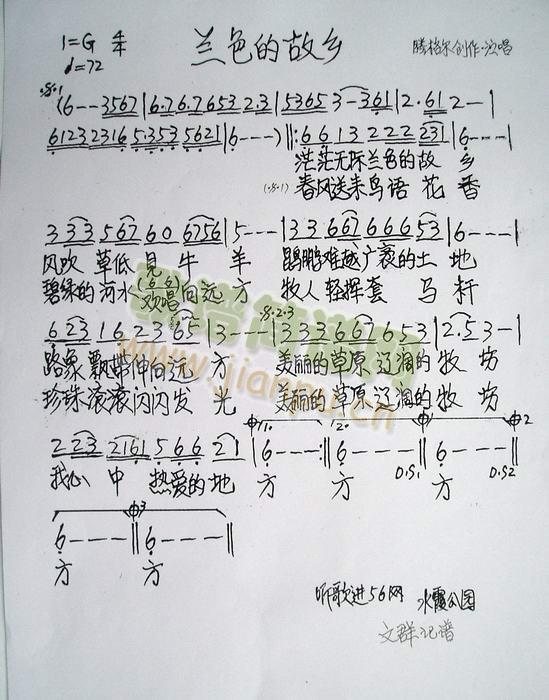 1=G 4/4 兰色的故乡 腾格尔创作·演唱
♩=72
(6--3567|6.76.7 6532.3|53653-361|2.612--|
6123 2316 5.353 5621|6---)‖:6 6 1 3 2 2 2 231|6---|
茫茫无际兰色的故 乡
春风送来鸟语 花 香
3 33 5 67 60 6756|5---|3 3 6 67 6 6 6 53|6---|
风吹 草低 见 牛 羊 鹍鹏难越广袤的土 地
碧绿的河水欢唱向远 方 牧人轻挥套 马 杆
6 23 1 6 2 3 65|3---|3 3 3 6 67 6 53|2.53-|
路象飘带伸向远 方 美丽的草原辽阔的牧 场
珍珠滚滚闪闪发 光 美丽的草原辽阔的牧 场
2 23 2161 5 6 6 21|6---:‖6---‖6---‖
我心 中 热爱的地 方 方 方
D.S1 D.S2
6---‖6---‖
方 方
听歌进56网 水霞公园
文群记谱
www.jianpu.cn